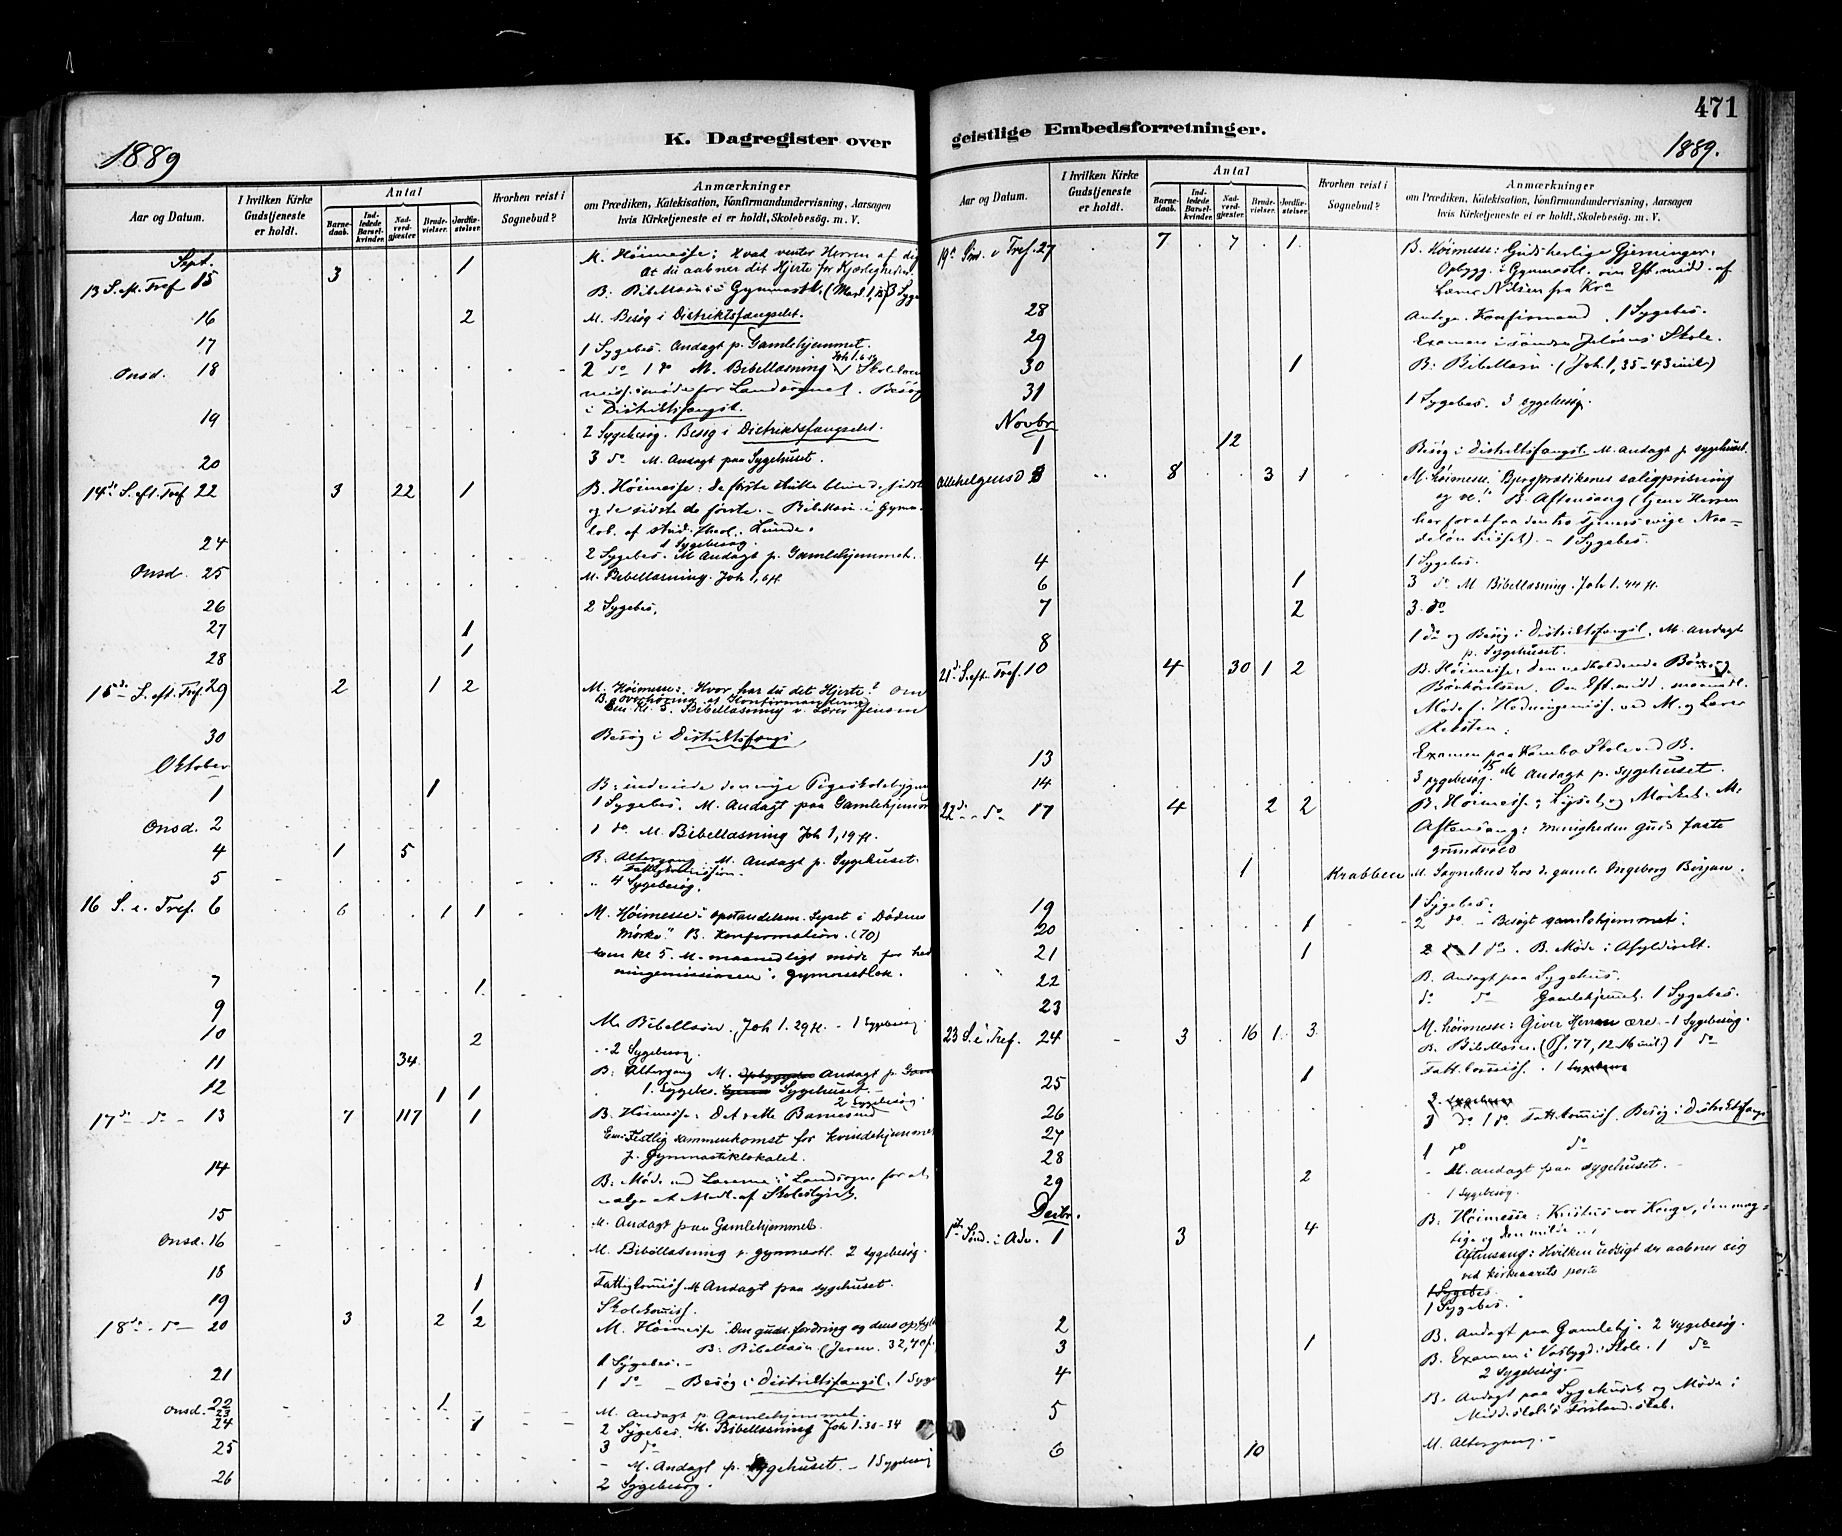 471
K. Dagregister over
geistlige Embedsforretninger.
1889
1889.
Aar og Datum.
I hvilken Kirke Gudstjeneste er holdt.
Antal
Barnedaab.
Indledede Barselkvinder.
Nadverdgjæster
Brudevielser.
Jordfæstelser.
Hvorhen reist i Sognebud?
Anmærkninger
om Prædiken, Katekisation, Konfirmandundervisning, Aarsagen
hvis Kirketjeneste ei er holdt, Skolebesög. m. V.
Sept.
13 S. eft. Tref 15 3 1 M. Höimesse: Hvad venter Herren af dig
At du aabner dit Hjerte for Kjærligheden.
B. Bibellæsn. i Gymnastl.
16 2 M. Besög i Distriktsfængselet.
17 1 Sygebes. Andagt p. Gamlehjemmet.
Onsd. 18 2 do 1 do M. Bibellæsning
möde for Landsognet. Besög
i Distriktsfængsl.
19 2 Sygebesög. Besög i Distriktsfængselet.
20 3 do M. Andagt paa Sygehuset.
14de S. eft. Tref 22 3 22 1 B. Höimesse: de förste skulle blive de sidste
og de sidste de förste. - Bibellæsn. i Gymn.
lok. af stud. theol. Lunde.
1 Sygebesög.
24 2 Sygebes. M Andagt p. Gamlehjemmet.
Onsd. 25 M. Bibellæsning. Joh 1, 6 ff.
26 2 Sygebes.
27 1
28 1
15de S. eft. Tref. 29 2 1 2 M. Höimesse: Hvor har du det Hjerte?
B. Overhöring af Konfirmanderne
Em. Kl. 5. Bibellæsning v. Lærer Jensen
30 Besög i Distriktsfængs.
Oktober
1 1 B: indviede den nye Pigeskolebygning
1 Sygebes. M. Andagt paa Gamlehjemmet
Onsd. 2 1 do M. Bibellæsning Joh 1, 19 ff.
4 1 5 B. Altergang. M. Andagt p. Sygehuset.
Fattigkommission.
5 " 4 Sygebesög.
16 S. e. Tref. 6 6 1 1 M. Höimesse: opstandelsens Lyset i Dödens
Mörke." B. Konfirmation. (70)
Em. kl 5. M. maanedligt möde for hed
ningemissionen i gymnastlok.
7 1
9 M. Bibellæsn. Joh 1. 29 ff. - 1 Sygebesög
10 2 - 2 Sygebesög.
11 34 B. Altergang M. Andagt p. Gam
12 1 1 1. Sygebes. Sygehuset -
2 Sygebesög.
17de - do - 13 7 117 1 B. Höimesse: Det rette Barnesind
Em. Festlig sammenkomst for kvindehjemmet
p. Gymnastiklokalet.
14 B: Möde med Lærerne i Landsogne for at
vælge et Medl. af Skolestyret.
15 M. Andagt paa Gamlehjemmet.
Onsd. 16 M. Bibellæsning p. gymnastl. 2 sygebesög.
18 1 Fattigkomiss M Andagt paa sygehuset.
19 1 Skolekomiss.
18de - do - 20 3 2 2 M. Höimesse Den guds fordring og dens opfyld
B: Bibellæsn (Jerem. 32,
1 Sygebes. -
21 1 do - Besög i Distriktsfængsl. 1 Syge
Onsd. 22 1 M. Andagt p. Gamlehjemmet.
23 2 Sygebes. M. Bibellæsning Joh 1. 30-34
24 1 3 do
25 - M. Andagt p. Sygehuset. - 1 Sygebesög
26 2 Sygebesög.
Aar og Datum.
I hvilken Kirke Gudstjeneste er holdt.
Antal
Barnedaab.
Indledede Barselkvinder.
Nadverdgjæster.
Brudevielser.
Jordfæstelser.
Hvorhen reist i Sognebud?
Anmærkninger
om Prædiken, Katekisation, Konfirmandundervisning, Aarsagen
hvis Kirketjeneste ei er holdt, Skolebesög. m. V.
19de Sönd. e Tref. 27 7 7 1 B. Höimesse: Guds herlige Gjerninger.
Opbygg. i Gymnastl. om Eft.midd. af
Lærer Nilsen fra Kra
28 Antegn. Konfirmand. 1 Sygebes.
29 Examen i söndre Jelöens Skole.
30 1 B: Bibellæsn. (Joh. 1, 35-43 incl)
31 1 Sygebes. 3 sygebesög.
Novbr
1 12 Besög i distriktsfængsl. M. andagt p. sygehuset
Allehelgensd 3 8 3 1 M. Höimesse: Bjergprædikenes saligprisning
og ve." B. Aftensang (tjene Herren
4 1 Sygebes.
6 1 3 do M Bibellæsning. Joh 1. 44 ff.
7 2 3 do
8 1 do og Besög i Distriktsfængsl. M. Andagt
p. Sygehuset.
21de S. eft. Tref. 10 4 30 1 2 B. Höimesse: den vedholdende Bön og
Bönhörelsen. Om Eft.midd. maanedl.
Möde f. Hedningemiss. ved M. og Lærer
13 Examen paa Kambo Skole ved B.
14 3 sygebesög. M Andagt p. Sygehuset.
22de - do 17 4 2 2 B. Höimesse: Lyset og Mörket. M.
Aftensang: menigheden Guds faste
grundvold
1 Krabben M. Sognebud hos d. gamle Ingeborg Början.
19 1 Sygebes.
20 1 2 do - Besögt gamlehjemmet.
21 1 2 1 do. B. Möde i Asyldirekt.
22 B. Andagt paa Sygehus.
23 do do Gamlehjemmet. 1 Sygebes.
23 S. i Tref. 24 3 16 1 3 M. höimesse: Giver Herren ære. - 1 Sygebesög.
B. Bibellæsn. (Ps. 77, 12-16 incl.) 1 do
25 1 Fatt. Comiss. 1 Sygebes
26 3 do 1 do Fatt. Comiss. Besög i Distriktsfængs
27 1 do do
28 - M. andagt paa sygehuset. -
29 2 - 1 Sygebesög.
Decbr.
1ste Sönd. i Adv. 1 3 4 B: Höimesse: Kristus vor Konge, den mæg-
tige og den milde
Aftensang: Hvilken udsigt der aabner sig
ved kirkeaarets porte
1 Sygebes.
1 Sygebes.
2 B. Andagt paa Gamlehj. 2 sygebesög.
3 1 B. Examen i Vosbygd. Skole. 1 do
4 2 Sygebesög. -
5 B. Andagt paa Sygehuset og Möde i
6 10 M. Altergang. -